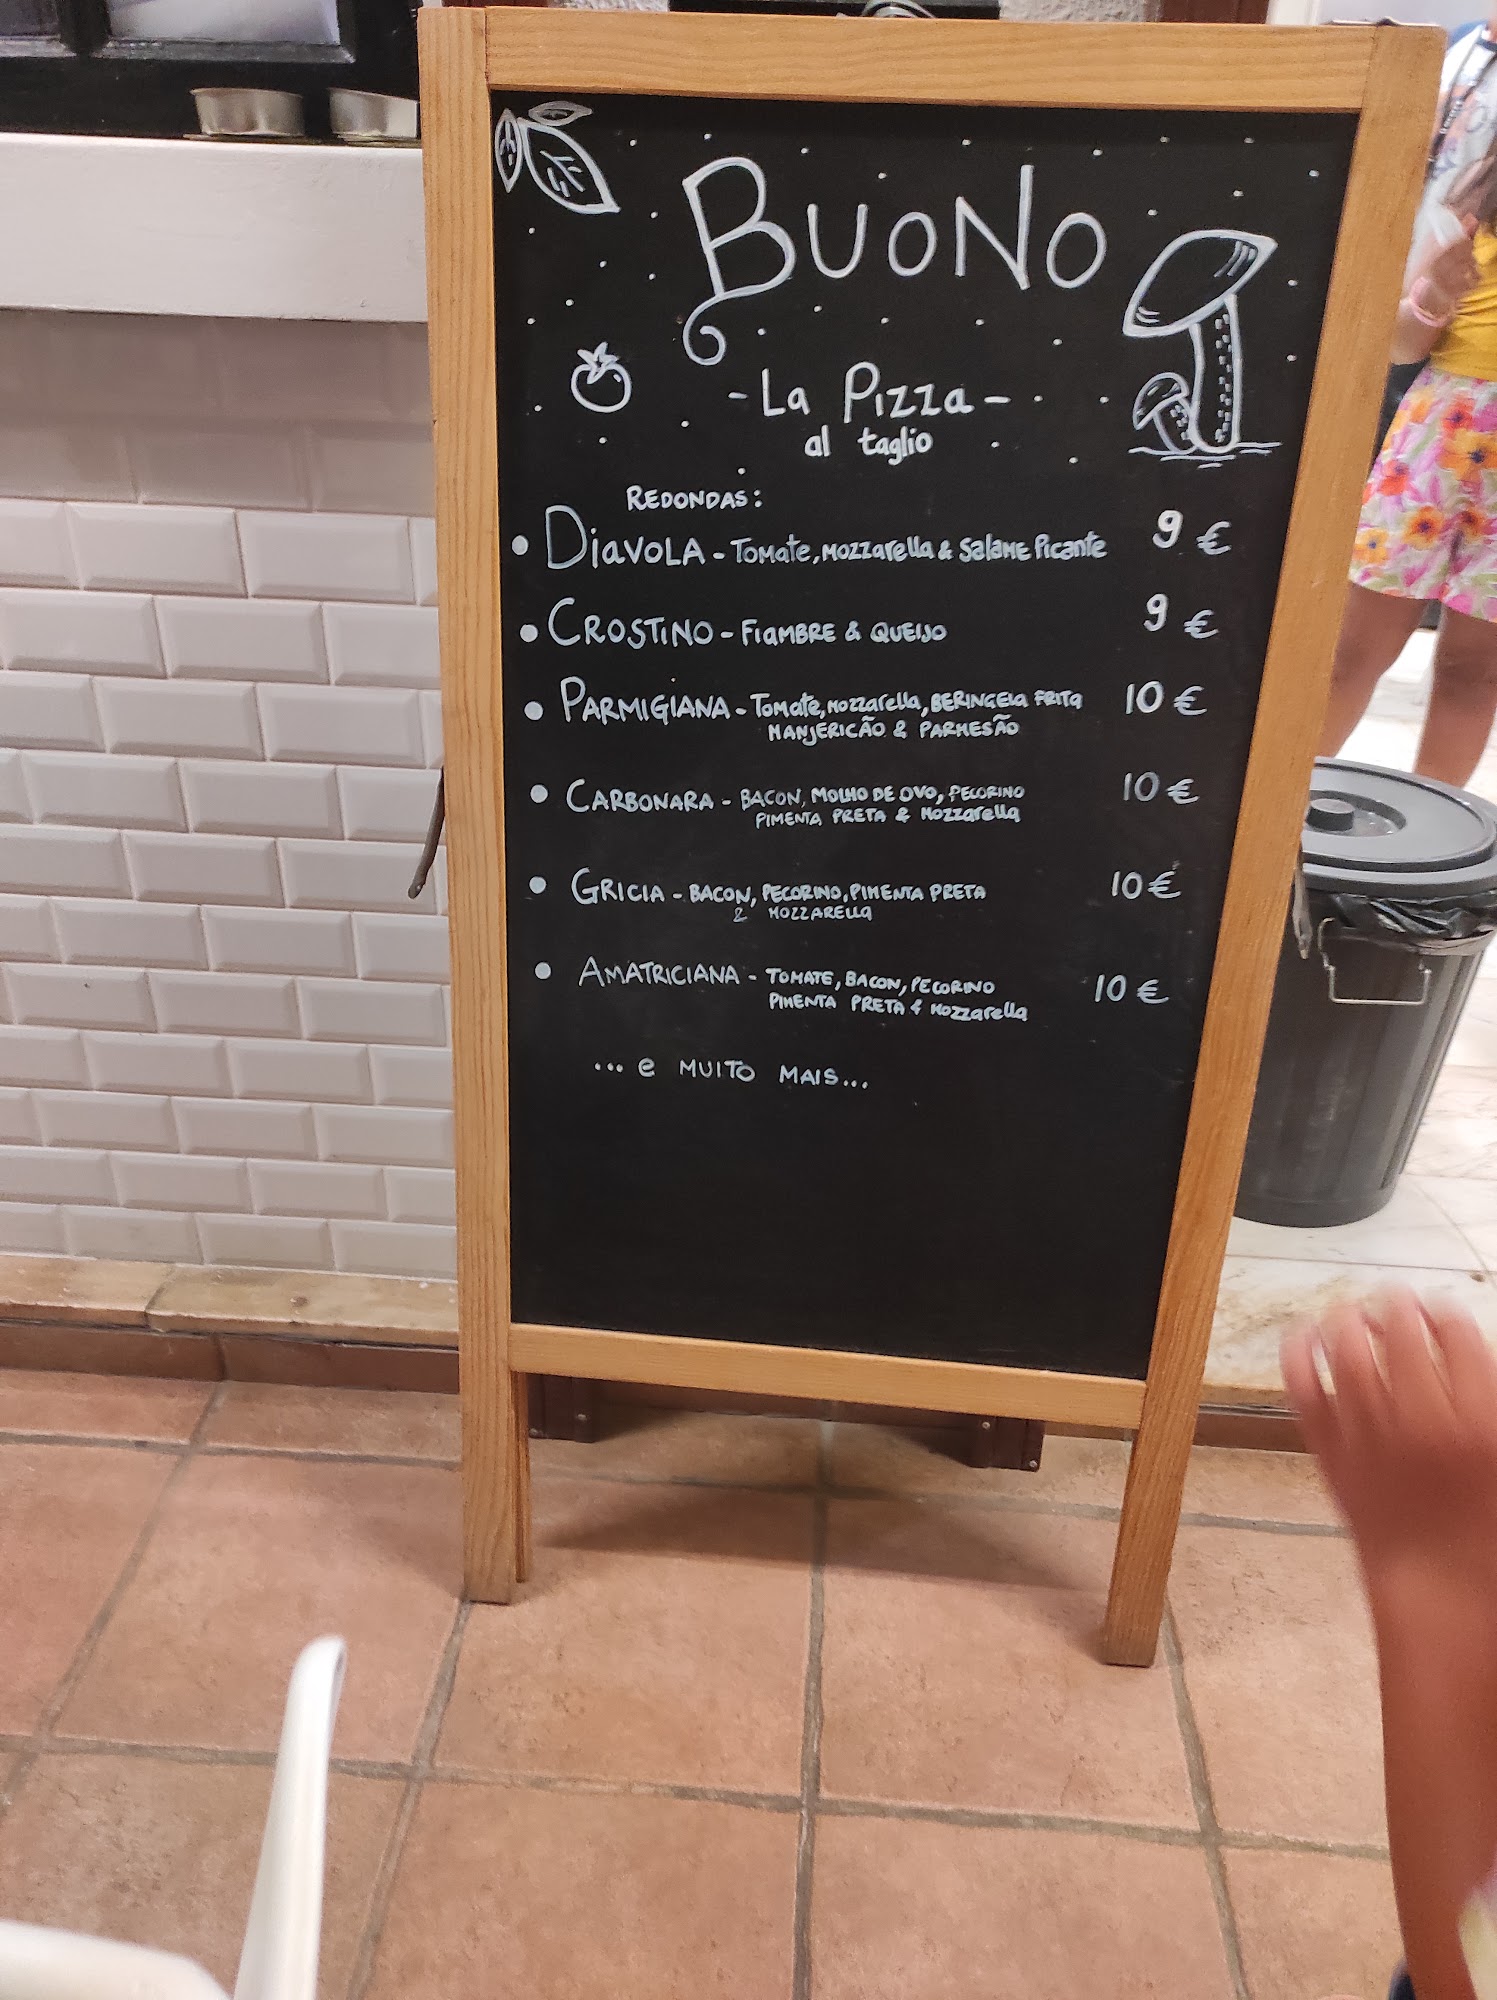 BUONO
- La Pizza -
al taglio
REDONDAS:
• DiavOLA - Tomate, Mozzarella & Salame Picante 9 €
• CROSTINO - FIAMBRE & QUEIJO 9 €
• PARMIGIANA - Tomate, Mozzarella, BERINGELA FRITA 10 €
MANJERICÃO & PARMESÃO
• CARBONARA - BACON, MOLHO DE OVO, PECORINO 10 €
PIMENTA PRETA & Mozzarella
• GRICIA - BACON, PECORINO, PIMENTA PRETA 10 €
& MOZZARELLA
• AMATRICIANA - TOMATE, BACON, PECORINO 10 €
PIMENTA PRETA & Mozzarella
... e MUITO MAIS...